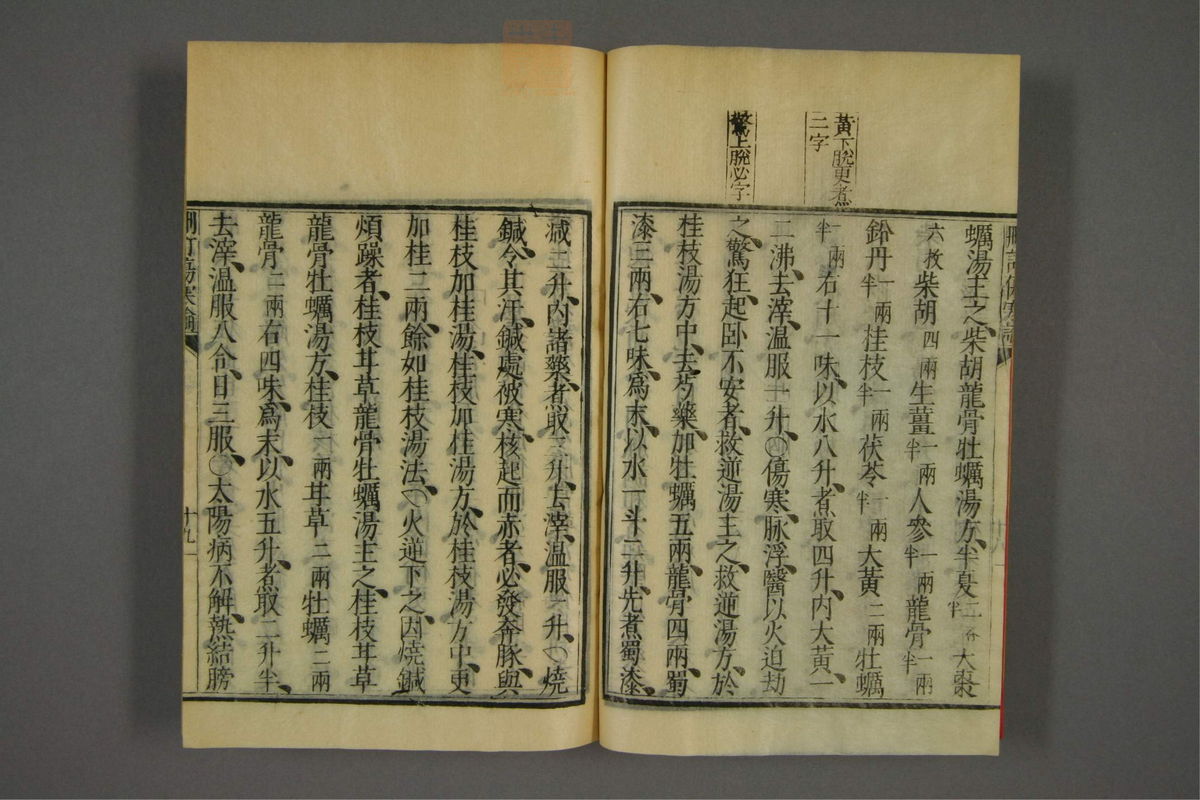 黃下脫更煮
二字
驚上脫必字
蠣湯主之、柴胡龍骨牡蠣湯方、半夏二合半大棗
六枚柴胡四兩生薑一兩半人參一兩半龍骨一兩半
鉛丹一兩半桂枝一兩半茯苓一兩半大黃二兩牡蠣
一兩半右十一味、以水八升、煮取四升、內大黃、一
二沸、去滓、溫服一升、○傷寒脉浮、醫以火迫劫
之、驚狂、起臥不安者、救逆湯主之、救逆湯方、於
桂枝湯方中、去芍藥、加牡蠣五兩、龍骨四兩、蜀
漆三兩、右七味爲末、以水一斗二升、先煮蜀漆、
減二升、內諸藥、煮取三升、去滓、溫服一升、○燒
鍼令其汗、鍼處被寒、核起而赤者、必發奔豚、與
桂枝加桂湯、桂枝加桂湯方、於桂枝湯方中、更
加桂二兩、餘如桂枝湯法、○火逆下之、因燒鍼
煩躁者、桂枝甘草龍骨牡蠣湯主之、桂枝甘草
龍骨牡蠣湯方、桂枝一兩甘草二兩牡蠣二兩
龍骨二兩右四味、爲末、以水五升、煮取二升半、
去滓、溫服八合、日三服、○太陽病不解、熱結膀
刪訂傷寒論
十九